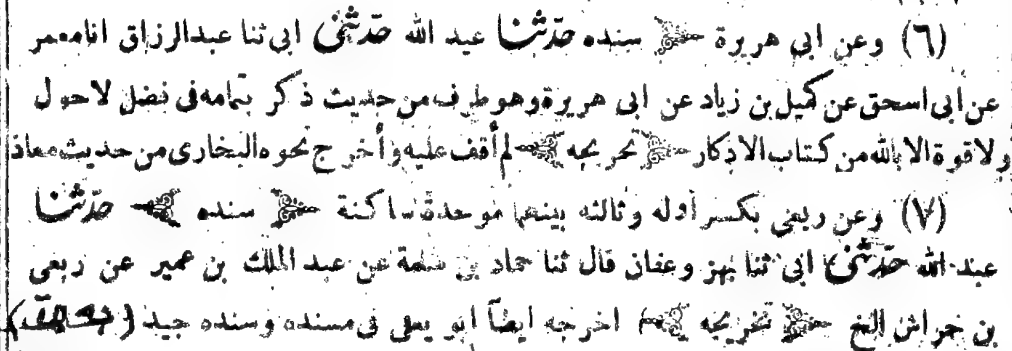 (٦) وعن ابى هريرة سنده حدّثنا عبد الله حدّثنى ابى ثنا عبد الرزاق انا معمر
عن ابى اسحق عن كميل بن زياد عن ابى هريرة وهو طرف من حديث ذكر بتمامه فى فضل لا حول
ولا قوة الا بالله من كتاب الاذكار تخريجه لم أقف عليه وأخرج نحوه البخارى من حديث معاذ
(٧) وعن ربعى بكسر أوله وثالثه بينهما موحدة ساكنة سنده حدّثنا
عبد الله حدّثنى ابى ثنا بهز وعفان قال ثنا حماد بن سلمة عن عبد الملك بن عمير عن ربعى
بن حراش الخ تخريجه اخرجه ايضاً ابو يعلى فى مسنده وسنده جيد